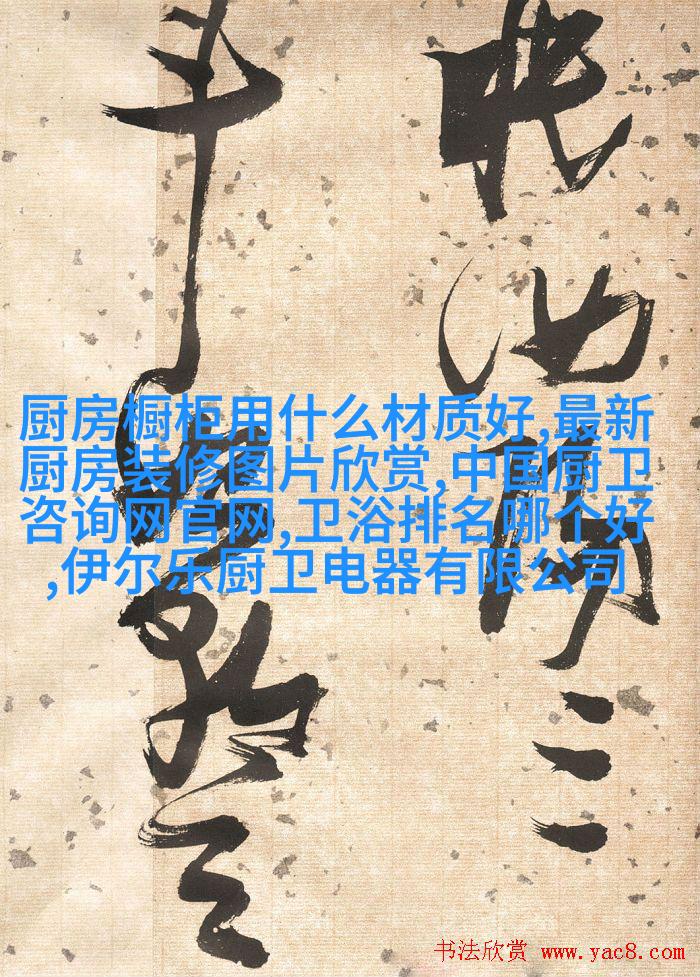 眠汝陽三
斗始朝天
厨房橱柜用什么材质好,最新
厨房装修图片欣赏,中国厨卫
咨询网官网,卫浴排名哪个好
,伊尔乐厨卫电器有限公司
书法欣赏 www.yac8.com